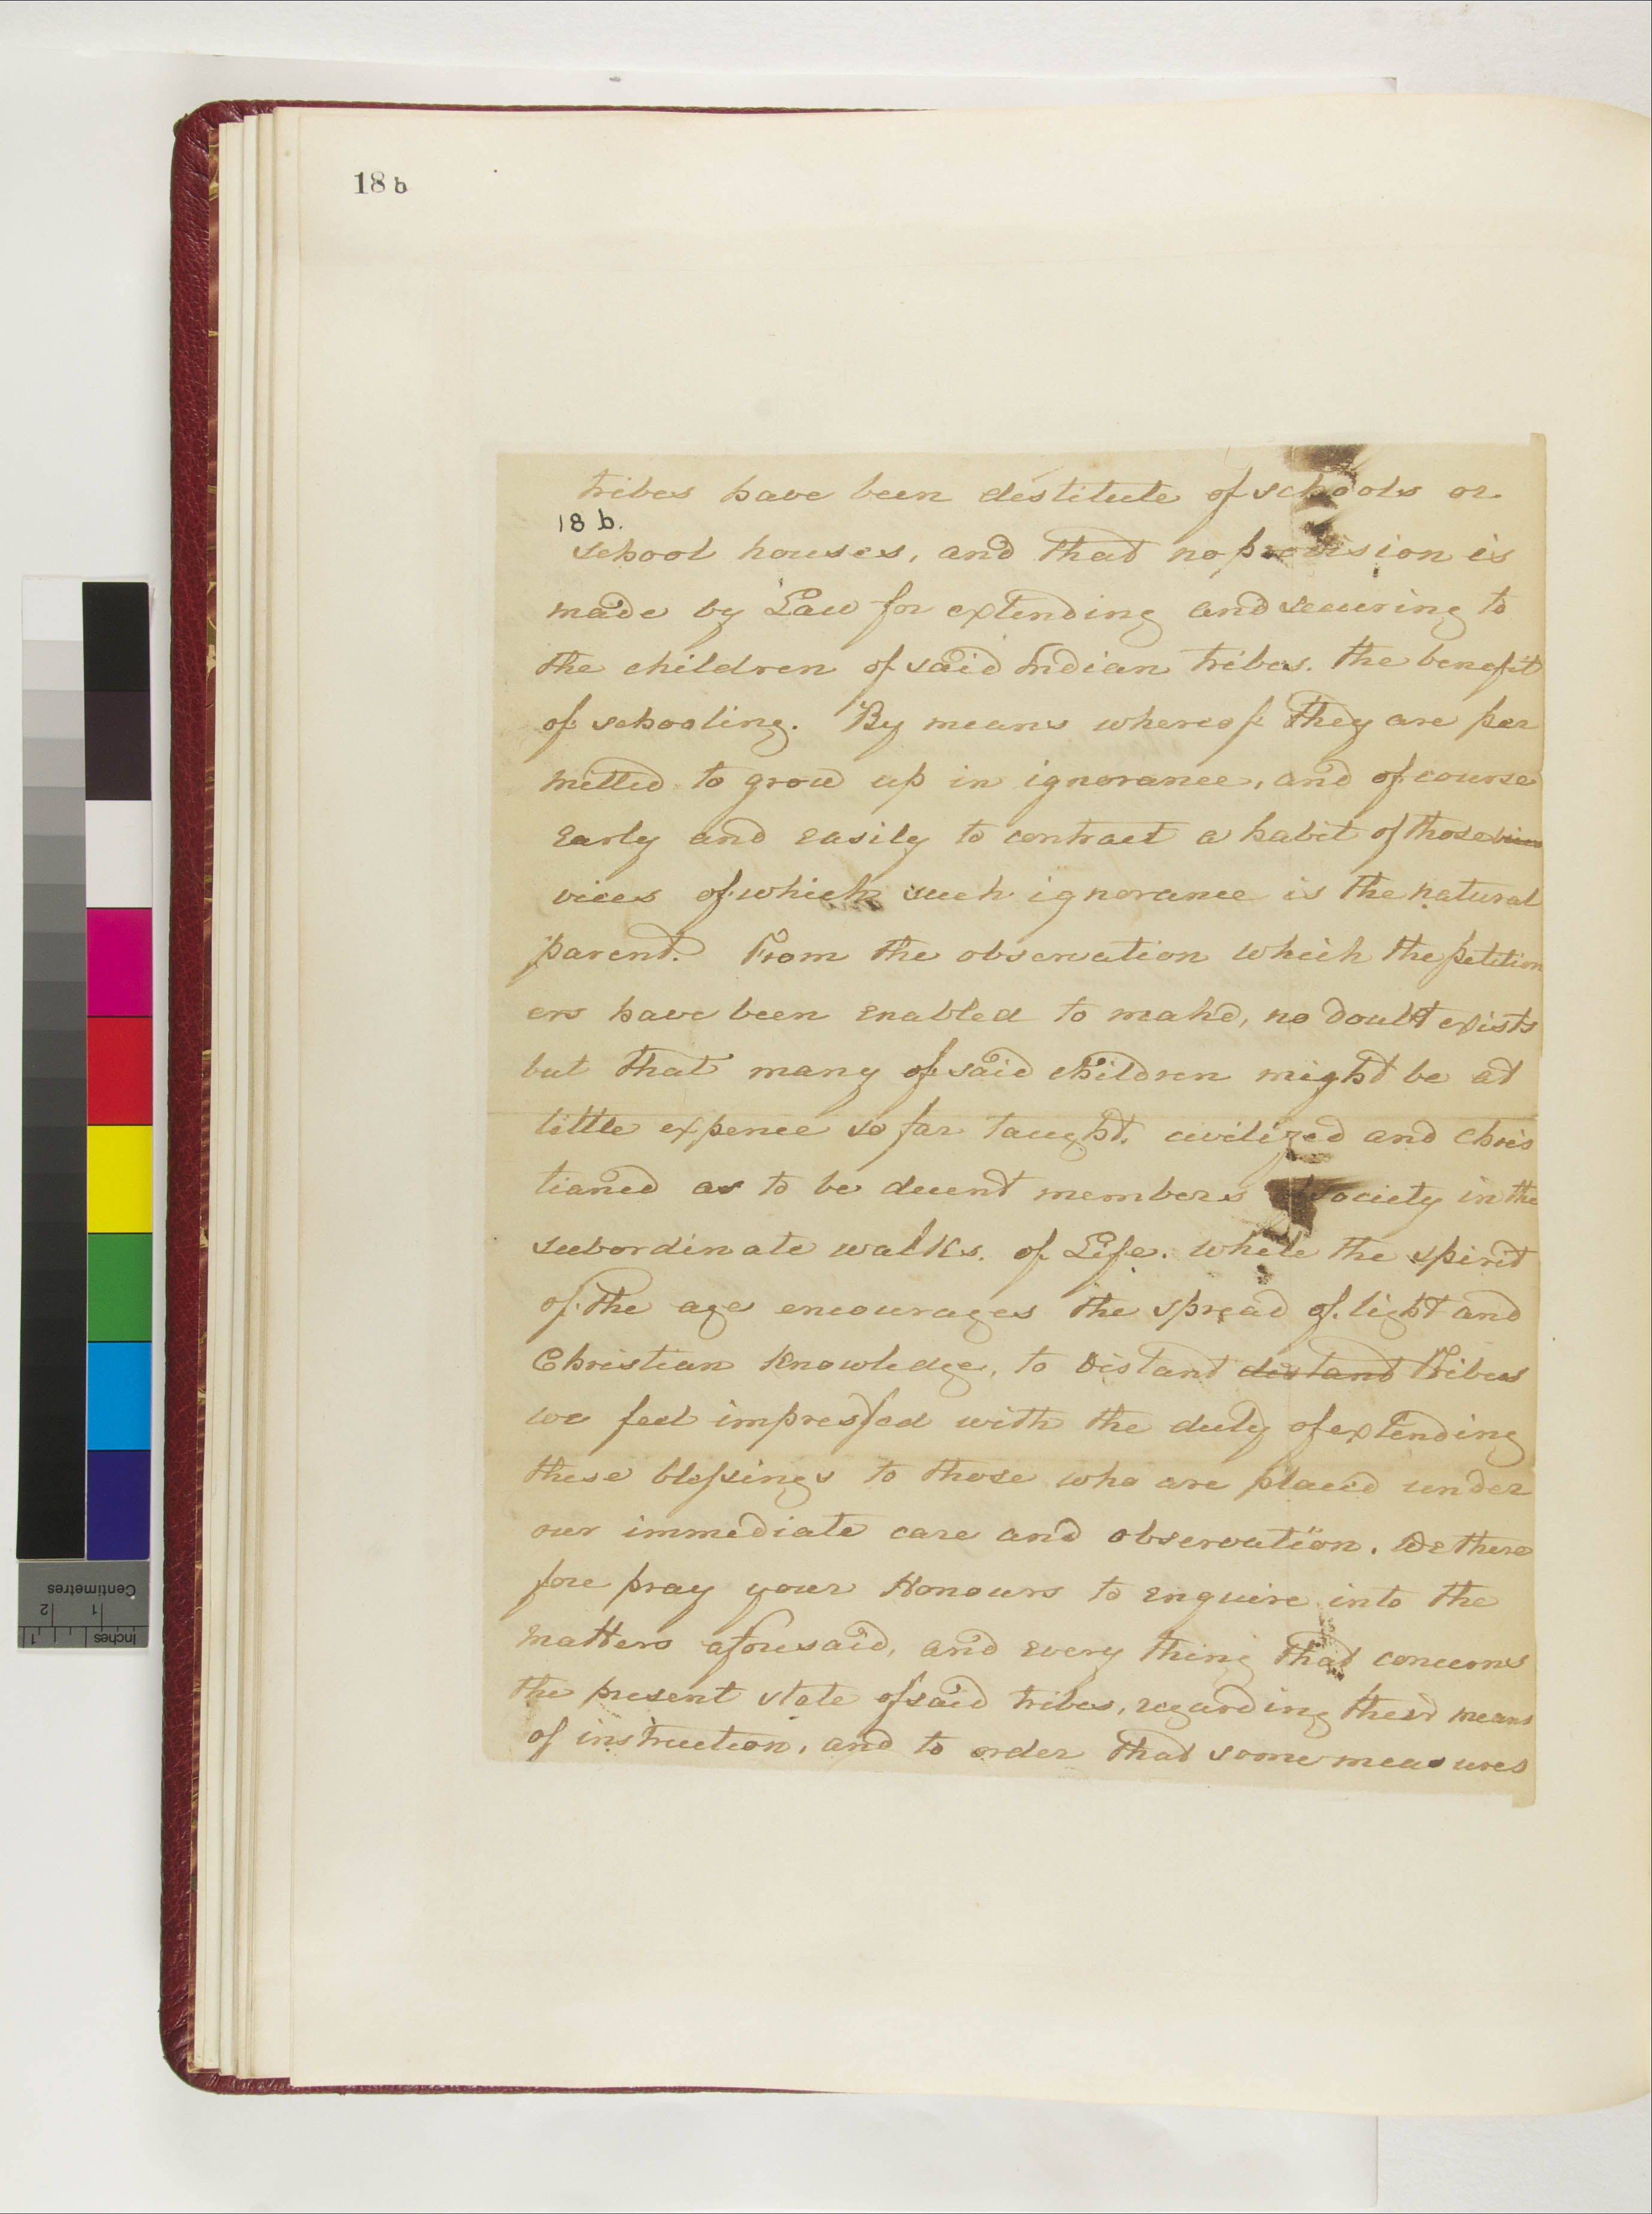 18 b
tribes have been destitute of schools or
18 b.
school houses, and that no provision is
made by Law for extending and securing to
the children of said Indian tribes. the benefit
of schooling. By means whereof they are per
mitted to grow up in ignorance, and of course
Early and easily to contract a habit of those vices
vices of which such ignorance is the natural
parent. From the observation which the petition
ers have been enabled to make, no doubt exists
but that many of said children might be at
little expence so far taught, civilized and chris
tianed as to be decent members of society in the
subordinate walks. of Life. while the spirit
of the age encourages the spread of light and
Christian Knowledge, to distant distant tribes
we feel impressed with the duty of extending
these blessings to those who are placed under
our immediate care and observation. We there
fore pray your Honours to enquire into the
matters aforesaid, and every thing that concerns
the present state of said tribes, regarding their means
of instruction, and to order that some measures
Centimetres
1 2
Inches
1